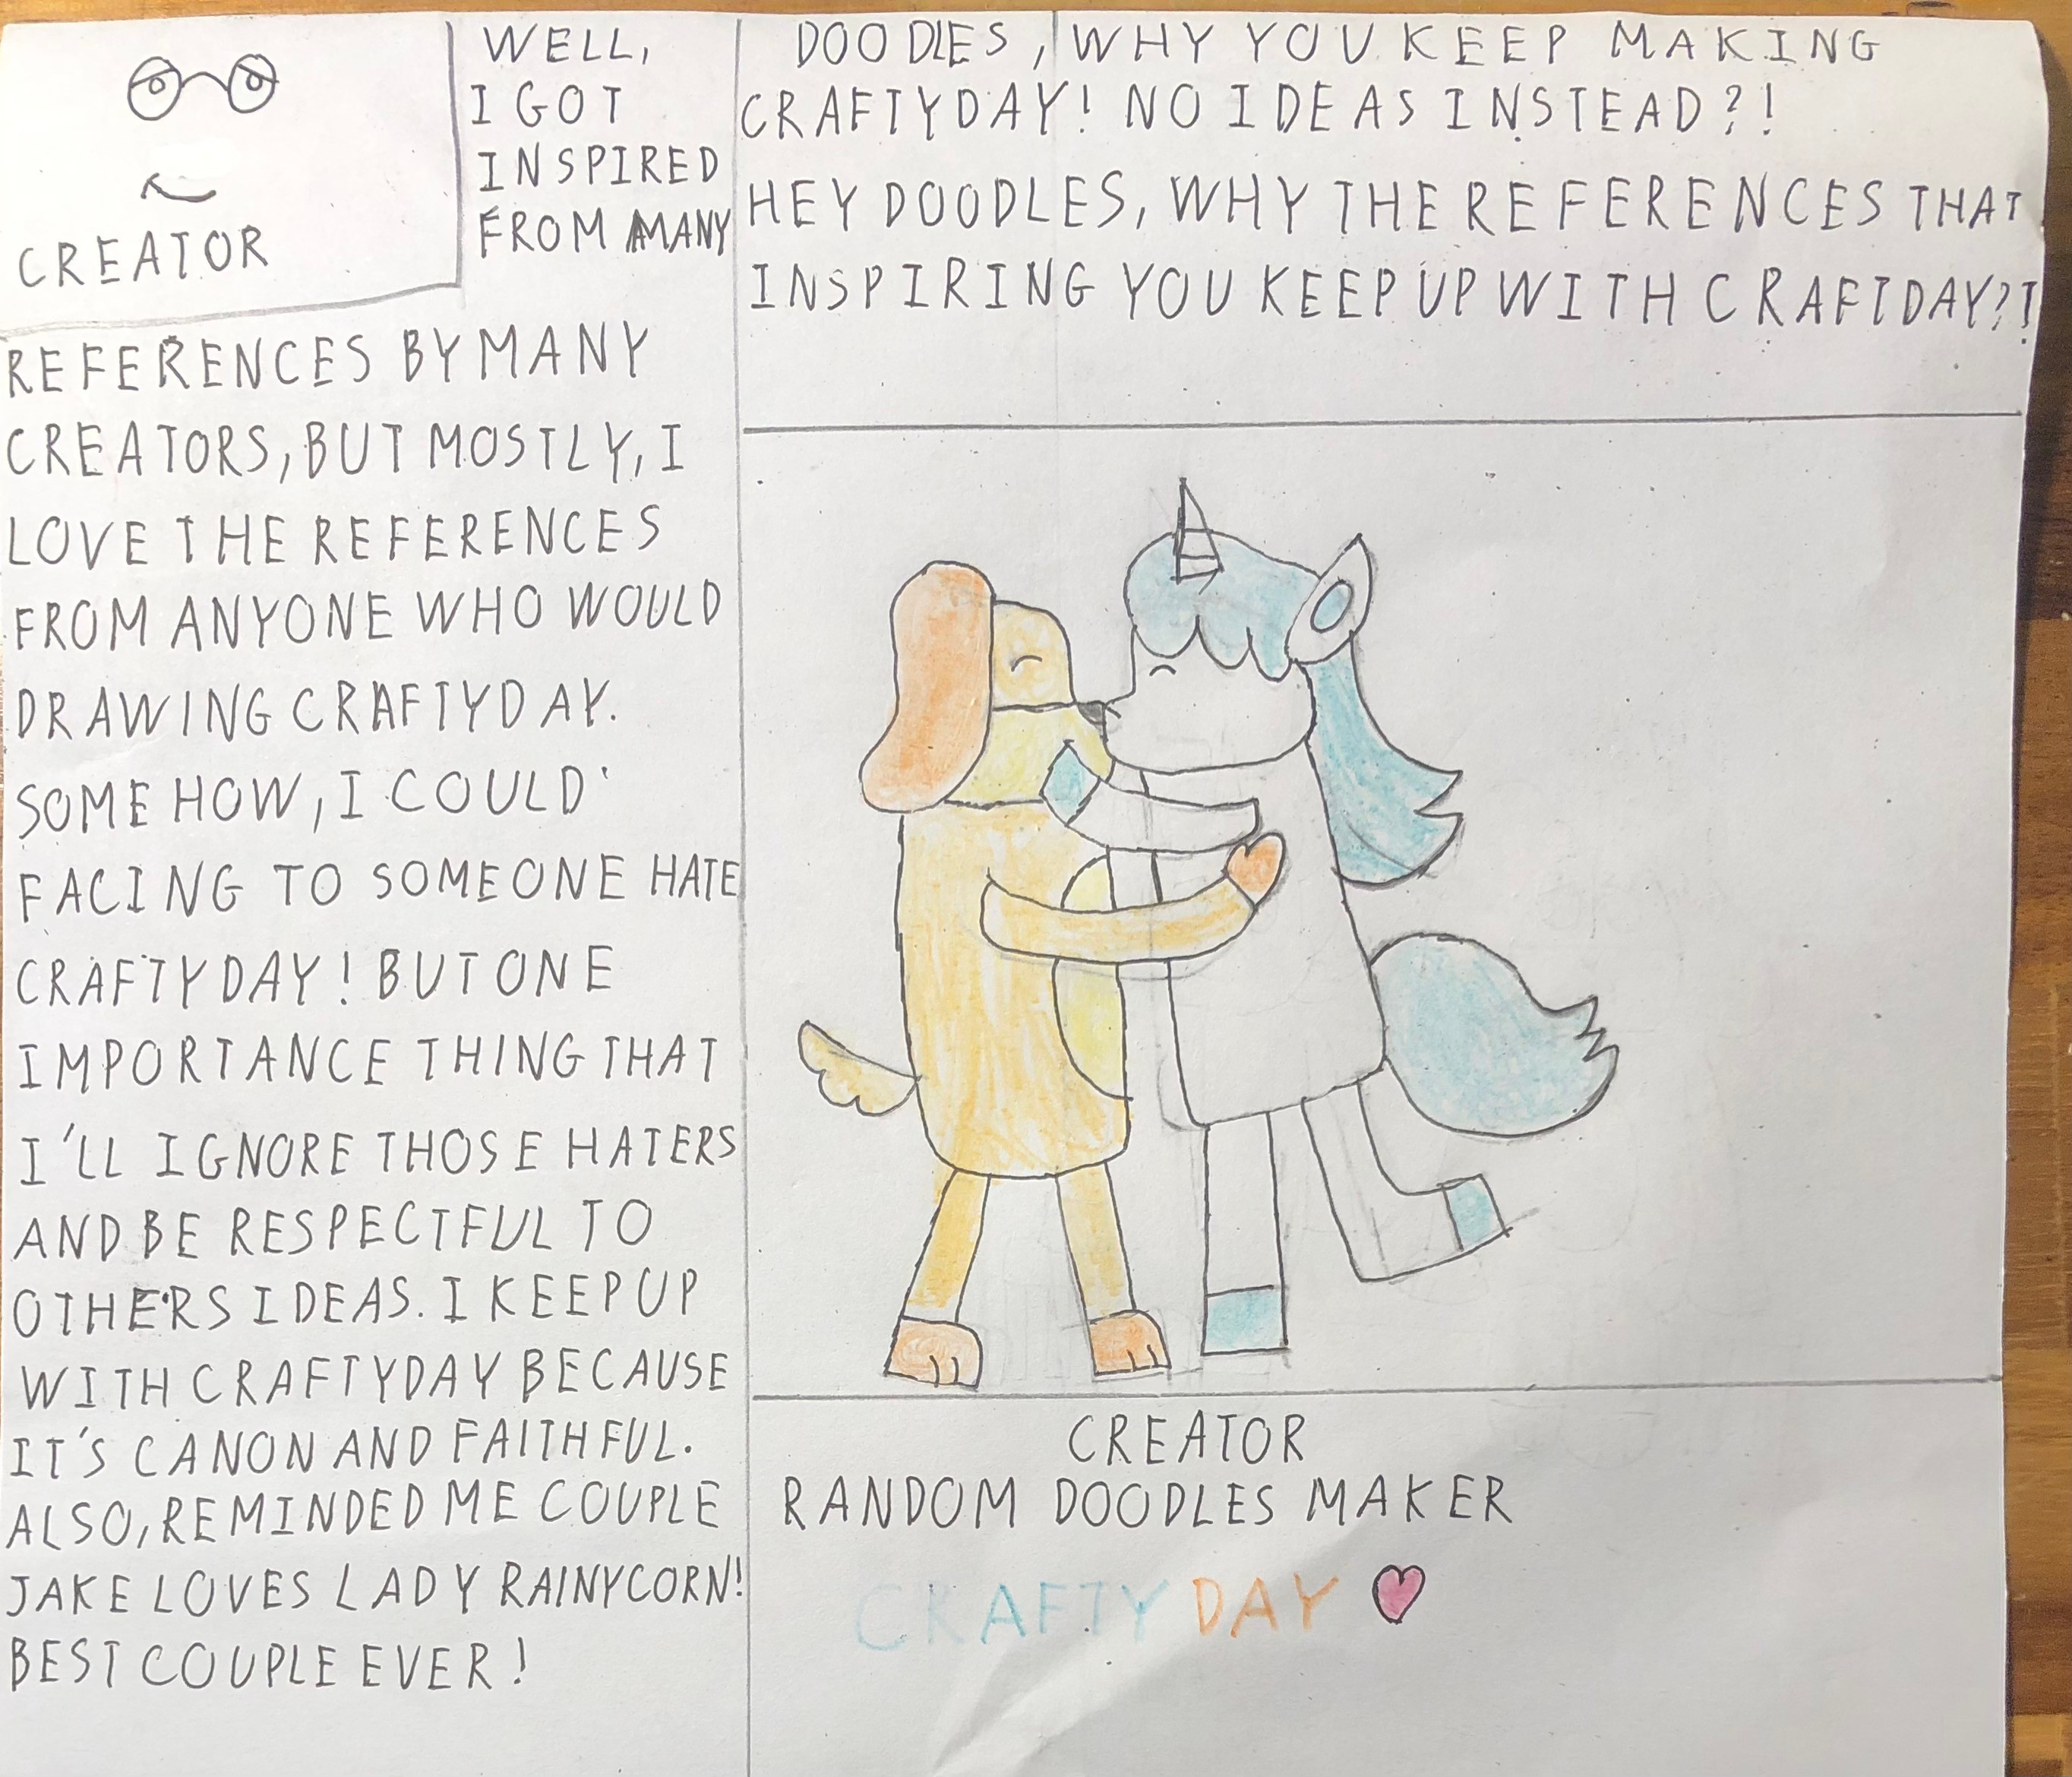 CREATOR
WELL,
I GOT
INSPIRED
FROM MANY
REFERENCES BY MANY
CREATORS, BUT MOSTLY, I
LOVE THE REFERENCES
FROM ANYONE WHO WOULD
DRAWING CRAFTYDAY.
SOME HOW, I COULD
FACING TO SOMEONE HATE
CRAFTYDAY! BUT ONE
IMPORTANCE THING THAT
I'LL IGNORE THOSE HATERS
AND BE RESPECTFUL TO
OTHER'S IDEAS. I KEEP UP
WITH CRAFTYDAY BECAUSE
IT'S CANON AND FAITHFUL.
ALSO, REMINDED ME COUPLE
JAKE LOVES LADY RAINYCORN!
BEST COUPLE EVER!
DOODLES, WHY YOU KEEP MAKING
CRAFTYDAY! NO IDEAS INSTEAD?!
HEY DOODLES, WHY THE REFERENCES THAT
INSPIRING YOU KEEP UP WITH CRAFTDAY?!
CREATOR
RANDOM DOODLES MAKER
CRAFTYDAY